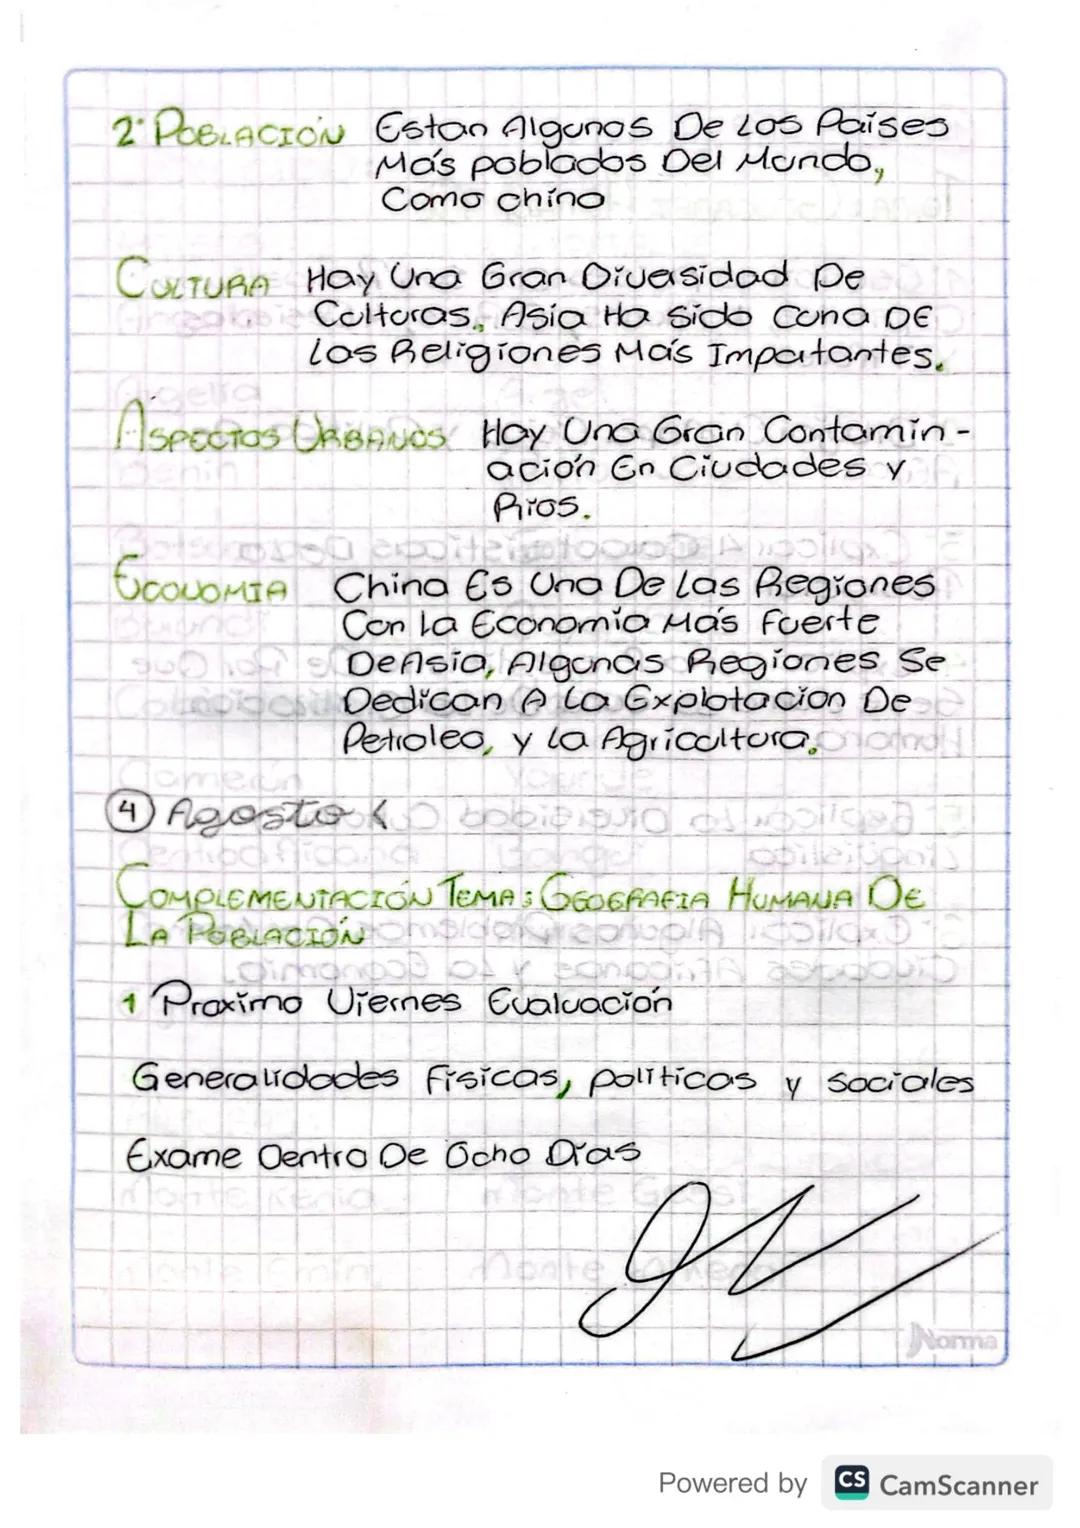 2° POBLACIÓN Estan Algunos De Los Países
Más poblados Del Mundo,
Como china
CULTURA Hay Una Gran Diversidad De
Culturas, Asia Ha Sido Cuna DE
Las Religiones Más Importantes.
ASPECTOS URBANOS Hay Una Gran Contamin-
ación En Ciudades y
Ríos.
ECONOMIA China Es Una De Las Regiones
Con La Economía Más Fuerte
De Asia, Algunas Regiones Se
Dedican A La Explotacion De
Petroleo, y La Agricultura.
4 Agosto
COMPLEMENTACIÓN TEMA: GEOGRAFIA HUMANA DE
LA POBLACIÓN
1 Proximo Viernes Evaluación
Generalidades físicas, políticas y sociales
Exame Dentro De Ocho Días
Norma
Powered by CS CamScanner